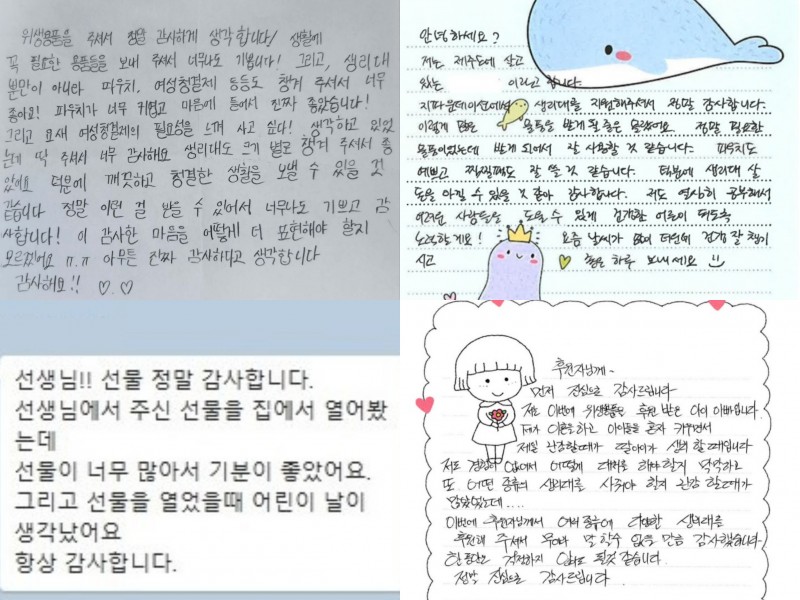 위생용품을 주셔서 정말 감사하게 생각합니다! 생활에
꼭 필요한 용품들을 보내 주셔서 너무나도 기쁩니다! 그리고, 생리대
뿐만이 아니라 파우치, 여성청결제 등등도 챙겨 주셔서 너무
좋아요! 파우치가 너무 귀엽고 마음에 들어서 진짜 좋았습니다!
그리고 요새 여성청결제의 필요성을 느껴 사고 싶다! 생각하고 있었
는데 딱 주셔서 너무 감사해요 생리대도 크기 별로 챙겨 주셔서 좋
았어요 덕분에 깨끗하고 청결한 생활을 보낼 수 있을 것
같습니다 정말 이런 걸 받을 수 있어서 너무나도 기쁘고 감
사합니다! 이 감사한 마음을 어떻게 더 표현해야 할지
모르겠어요 ㅠ.ㅠ 아무튼 진짜 감사하다고 생각합니다
감사해요!!
안녕하세요?
저는 제주도에 살고
있는 이라고 합니다.
지파운데이션에서 생리대를 지원해주셔서 정말 감사합니다.
이렇게 많은 용품들을 받게 될 줄은 몰랐어요. 정말 필요한
용품이었는데 받게 되어서 잘 사용할 것 같습니다. 파우치도
예쁘고 찜질팩도 잘 쓸 것 같습니다. 덕분에 생리대 살
돈을 아낄 수 있을 것 같아 감사합니다. 저도 열심히 공부해서
어려운 사람들을 도울 수 있게 건강한 어른이 되도록
노력할게요! 요즘 날씨가 많이 더운데 건강 잘 챙기
시고 좋은 하루 보내세요
선생님!! 선물 정말 감사합니다.
선생님에서 주신 선물을 집에서 열어봤
는데
선물이 너무 많아서 기분이 좋았어요.
그리고 선물을 열었을때 어린이 날이
생각났어요
항상 감사합니다.
후원자님께~
먼저 진심으로 감사드립니다
저는 이번에 위생용품을 후원 받은 아이 아빠입니다.
이혼을하고 아이들을 혼자 키우면서
제일 난감할때가 딸아이가 생리 할때입니다
저도 경험이 없어서 어떻게 대처를 해야 할지 막막하고
또 어떤 종류의 생리대를 사줘야 할지 난감 할때가
많았었는데....
이번에 후원자님께서 여러 종류에 다양한 생리대를
후원해 주셔서 뭐라 말 할수 없을 만큼 감사했습니다
한동안은 걱정하지 않아도 될것 같습니다.
정말 진심으로 감사드립니다.